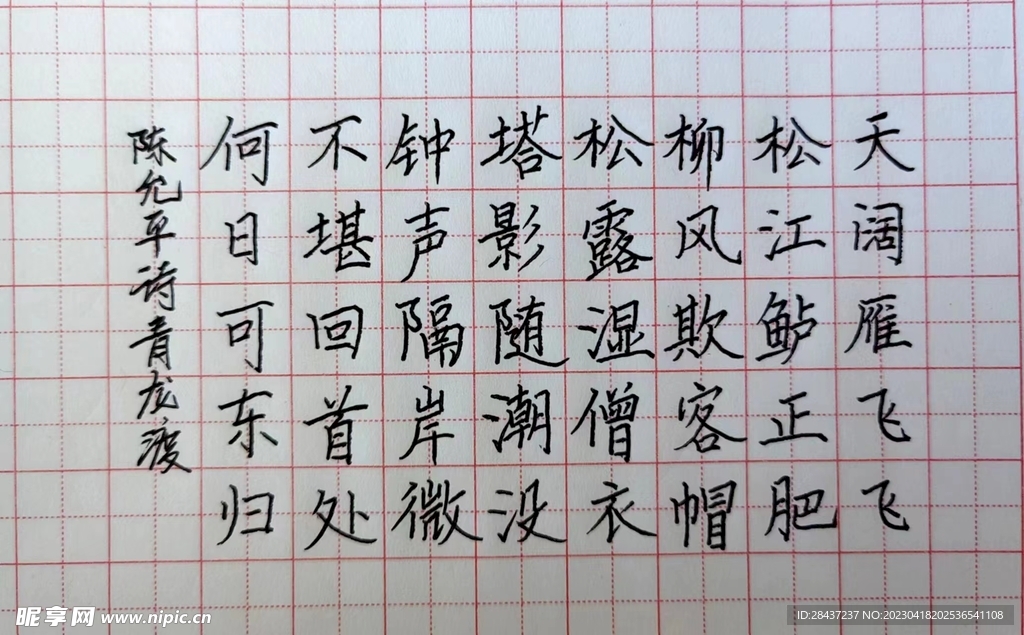 天阔雁飞飞
松江鲈正肥
柳风欺客帽
松露湿僧衣
塔影随潮没
钟声隔岸微
不堪回首处
何日可东归
陈允平诗青龙渡
昵享网 www.nipic.cn
ID:28437237 NO:20230418202536541108